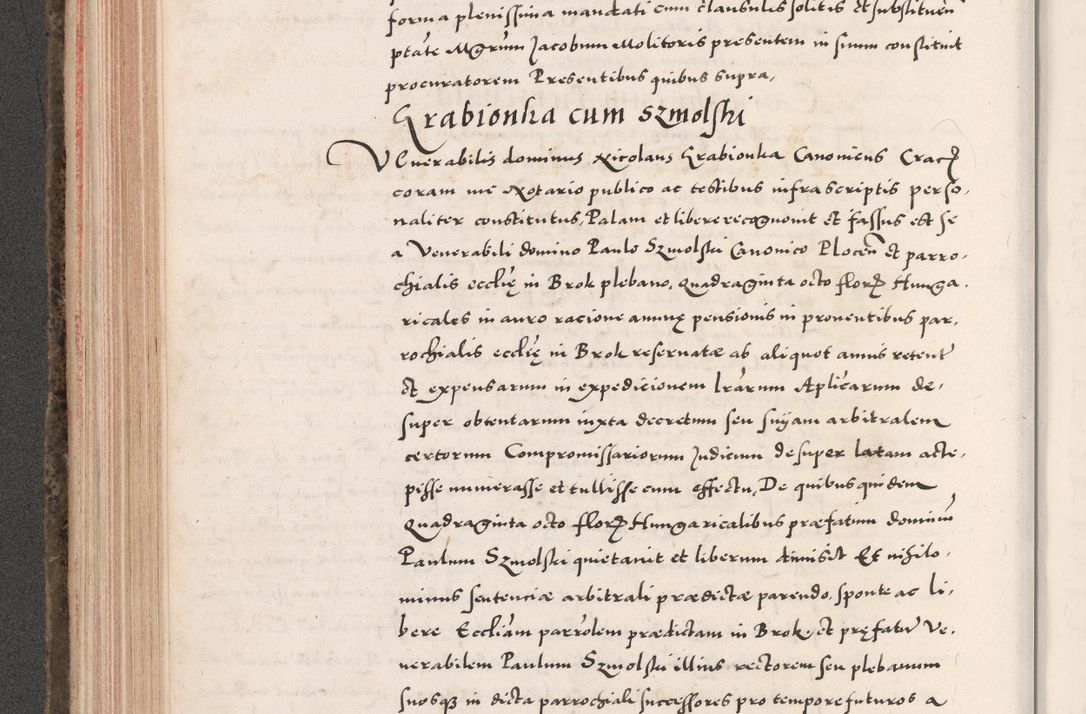 forma plenissima mandati cum clausulis solitis et substituen
ptate Mgrum Jacobum Molitoris presentem in suum constituit
procuratorem Presentibus quibus supra,
Grabionka cum Szmolski
VEnerabilis dominus Nicolaus Grabionka Canonicus Crac
coram me Notario publico ac testibus infrascriptis perso,
naliter constitutus, Palam et libere recognouit et fassus est se
a Venerabili domino Paulo Szmolski Canonico Plocen et parro,
chialis ecclię in Brok plebano, quadraginta octo flor Hunga,
ricales in auro racione annuę pensionis in prouentibus par,
rochialis ecclię in Brok reseruatæ ab aliquot annis retent
et expensarum in expedicionem lrarum Aplicarum de,
super obtentarum iuxta decretum seu sniam arbitralem
certorum Compromissariorum Judicum desuper latam acce,
pisse numerasse et tullisse cum effectu, De quibus quidem
quadraginta octo flor Hungaricalibus præfatum dominu
Paulum Szmolski quietauit et liberum dimisit Et nihilo,
minus sentenciæ arbitrali prædictæ parendo, sponte ac li,
bere Eccliam parrolem prædictam in Brok, et pręfatu Ve,
nerabilem Paulum Szmolski illius rectorem seu plebanum
suosq in dicta parrochiali successores pro tempore futuros a